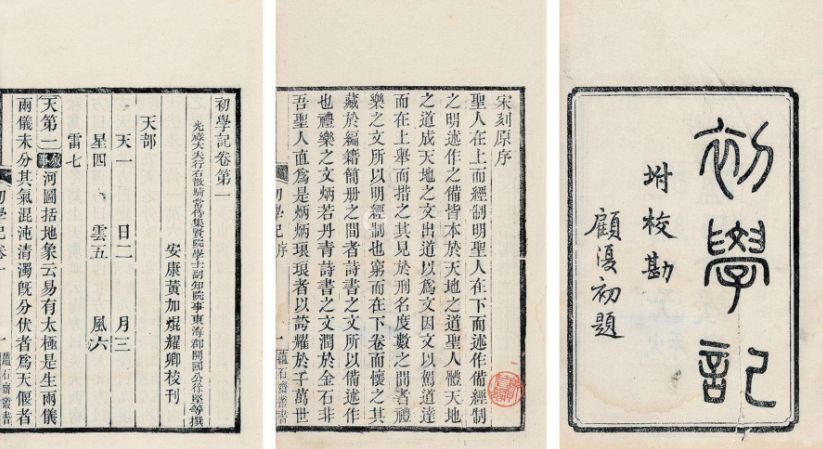 初學記
坿校勘
顧復初題
宋刻原序
聖人在上而經制明聖人在下而述作備經制
之明述作之備皆本於天地之道聖人體天地
之道成天地之文出道以爲文因文以駕道達
而在上舉而措之其見於刑名度數之間者禮
樂之文所以明經制也窮而在下卷而懷之其
藏於編籍簡册之間者詩書之文所以備述作
也禮樂之文炳若丹青詩書之文潤於金石非
吾聖人直爲是炳炳琅琅者以誇耀於千萬世
初學記序 一 蘊石齋叢書
初學記卷第一
光祿大夫行右散騎常侍集賢院學士副知院事東海郡開國公徐堅等撰
安康黃加焜耀卿校刊
天部
天一 日二 月三
星四 雲五 風六
雷七
天第一 敘事 河圖括地象云易有太極是生兩儀
兩儀未分其氣混沌清濁旣分伏者爲天偃者
蘊石齋叢書